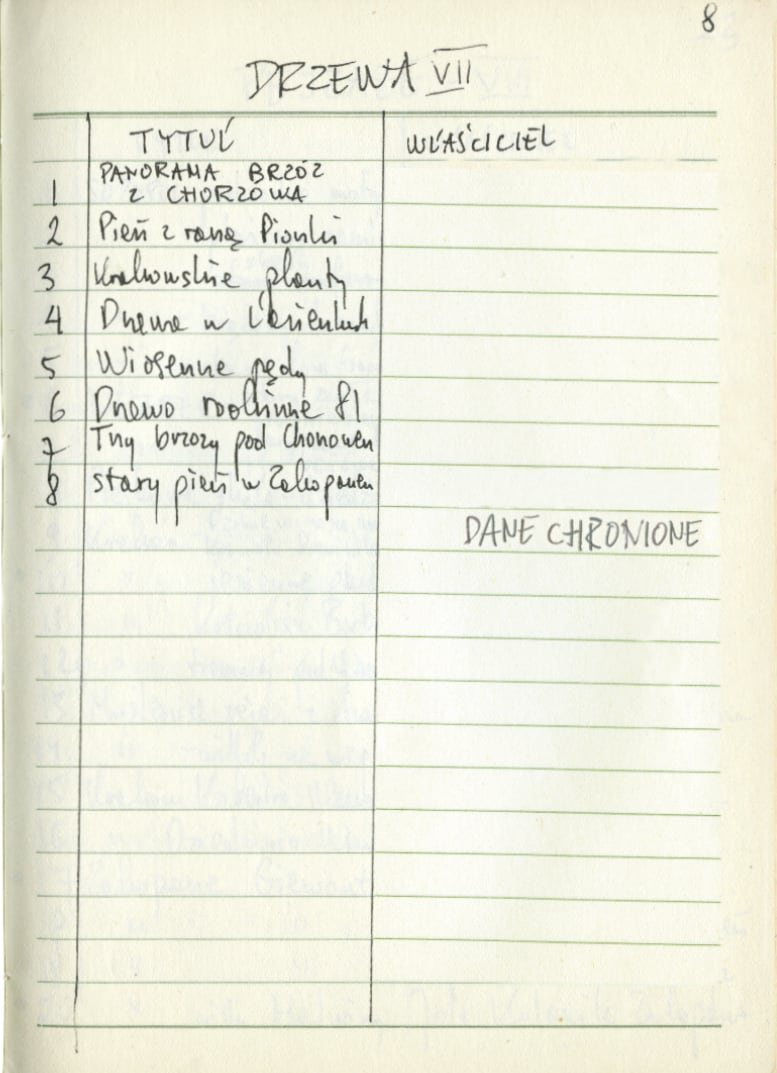 8
DRZEWA VII
TYTUŁ WŁAŚCICIEL
1 PANORAMA BRZÓZ
Z CHORZOWA
2 Pień z raną Pionki
3 Krakowskie planty
4 Drzewa w Łazienkach
5 Wiosenne pędy
6 Drzewo rodzinne 81
7 Trzy brzozy pod Chorzowem
8 stary pień w Zakopanem
DANE CHRONIONE